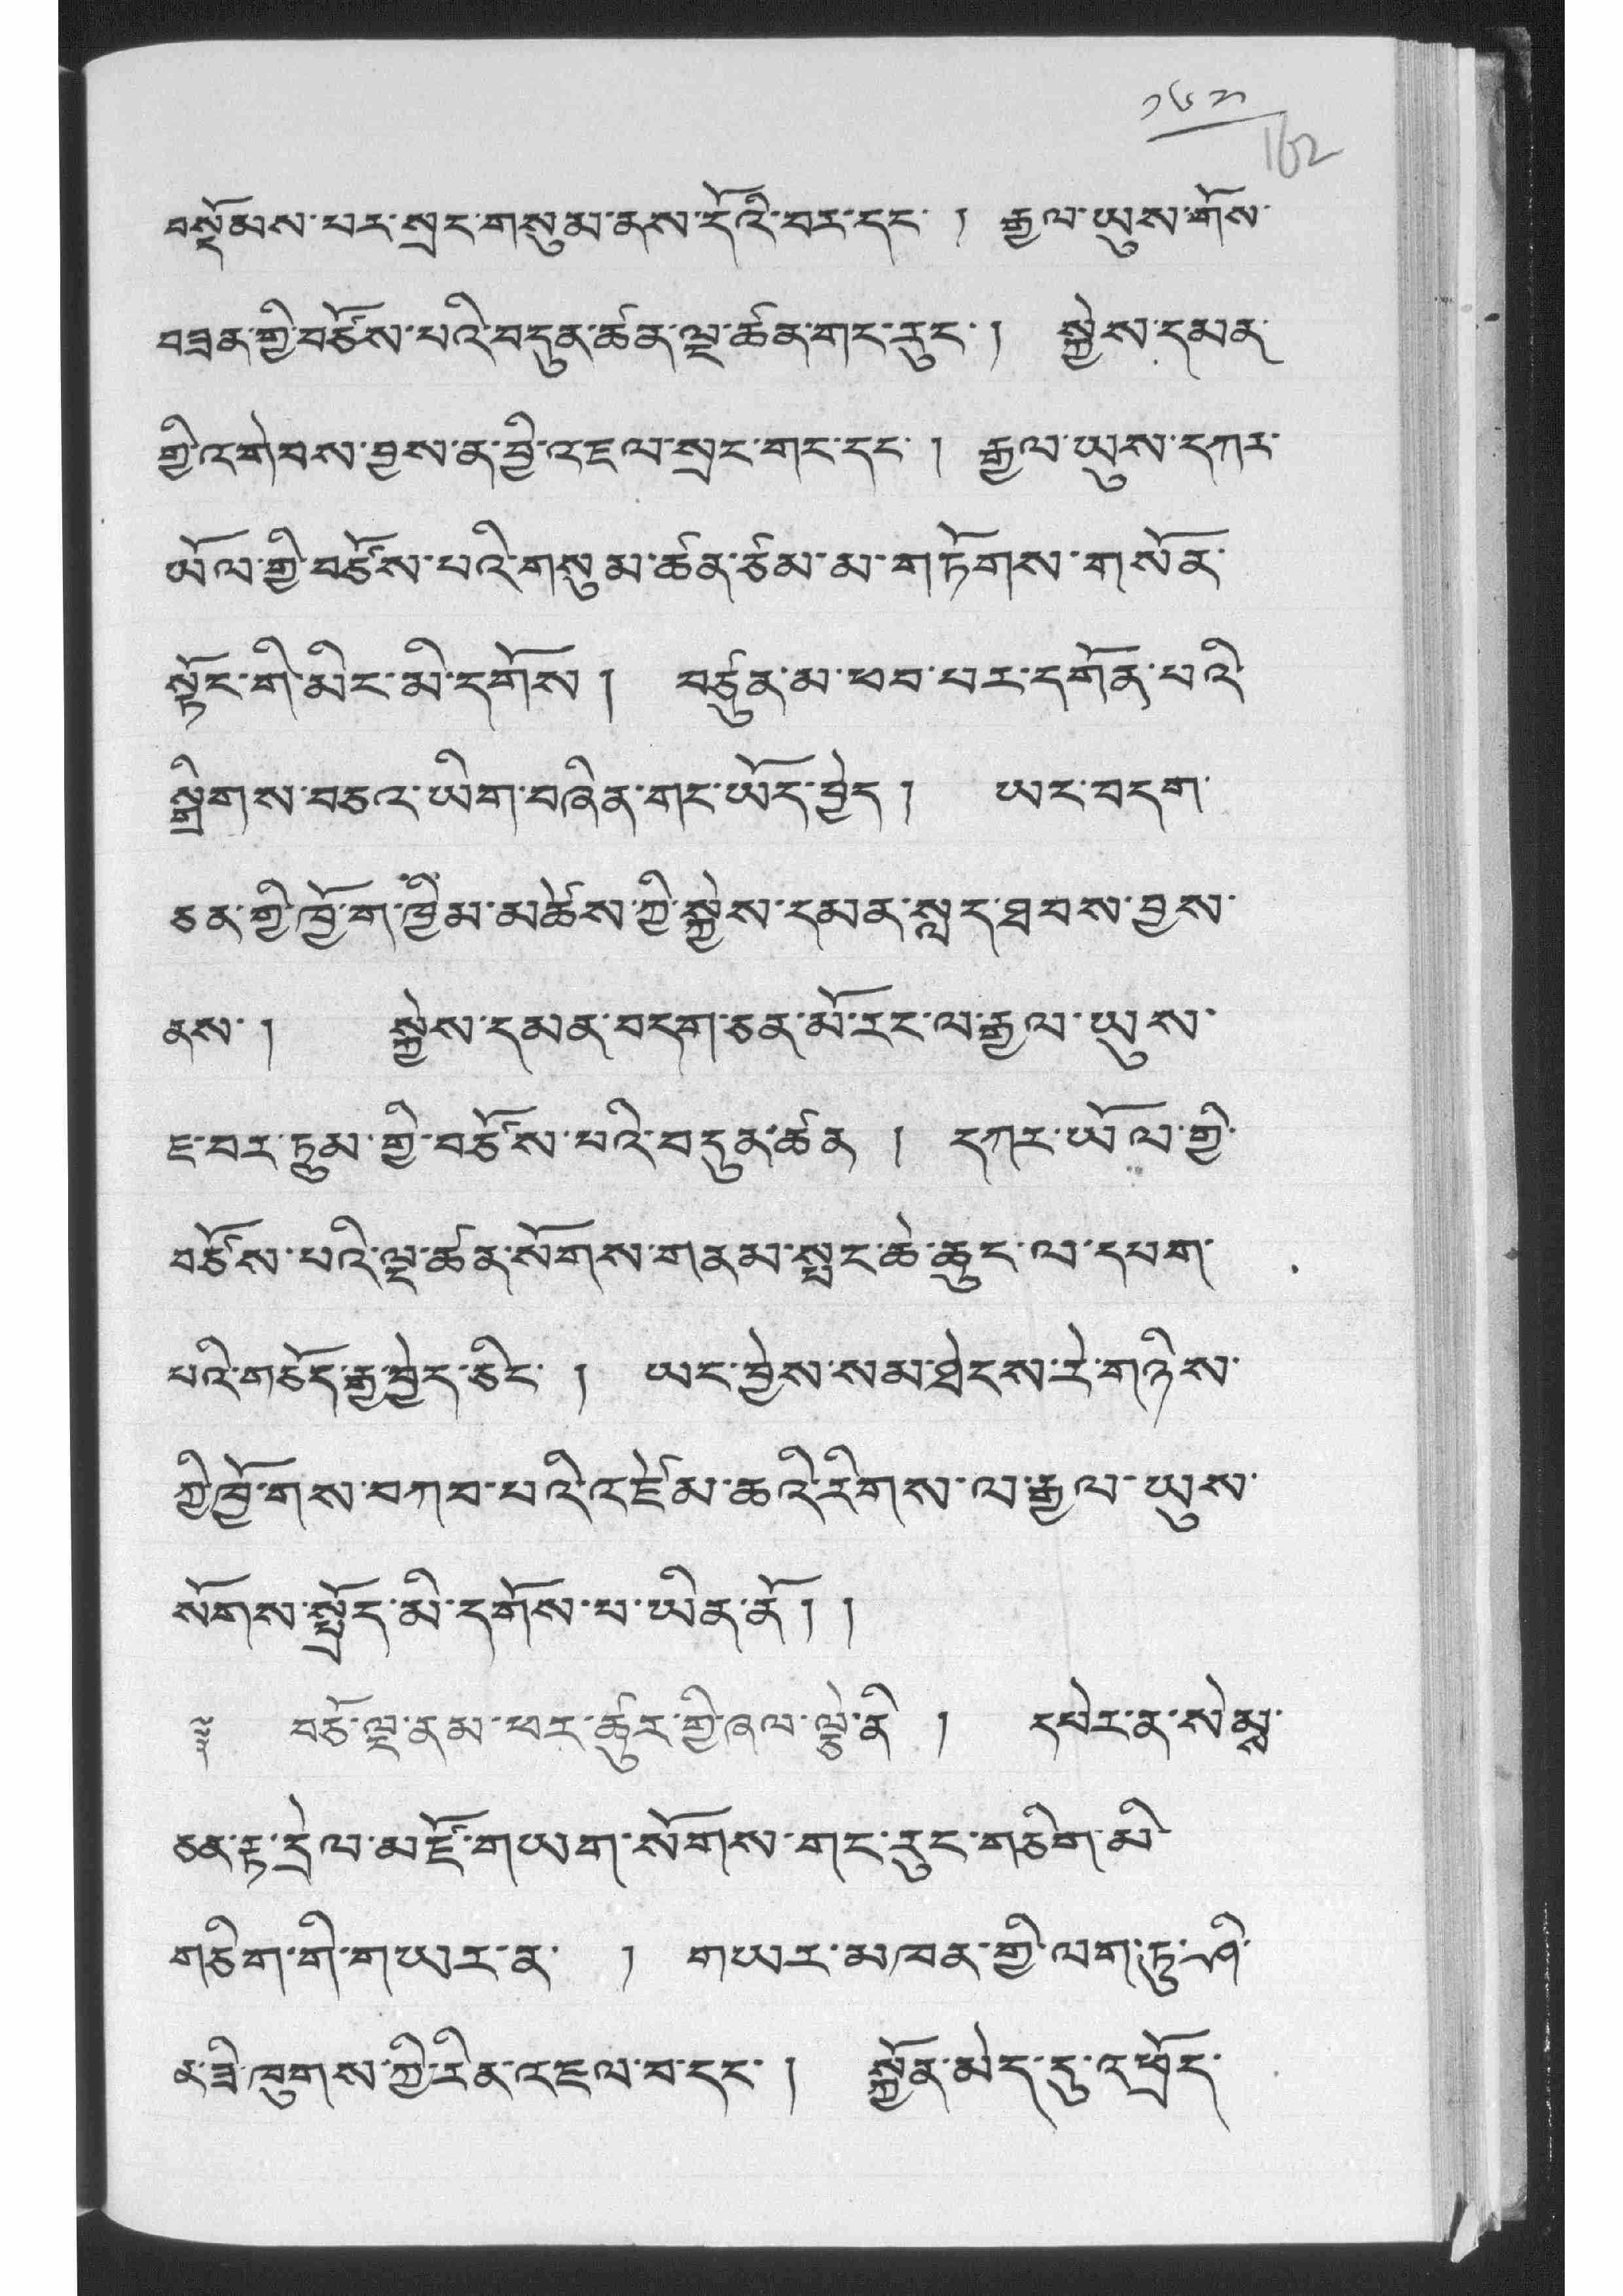 ༡༦༢
162
བསྡོམས་པར་སྲང་གསུམ་ནས་དོའི་བར་དང་ ། རྒྱལ་ཡུས་གོས་
བཟན་གྱི་བཙོས་པའི་བདུན་ཚན་ལྔ་ཚན་གང་རུང་ ། སྐྱེས་དམན་
གྱི་འགེབས་བྱས་ན་བྱི་འཇལ་སྲང་གང་དང་ ། རྒྱལ་ཡུས་དཀར་
ཡོལ་གྱི་བཙོས་པའི་གསུམ་ཚན་ཙམ་མ་གཏོགས་གསོན་
སྟོང་གི་མིང་མི་དགོས ། བཙུན་མ་ཕབ་པར་དགོན་པའི་
སྒྲིགས་བཅའ་ཡིག་བཞིན་གང་ཡོད་བྱེད ། ཡང་བདག་
ཅན་གྱི་ཁྱོ་ག་ཁྱིམ་མཚེས་ཀྱི་སྐྱེས་དམན་སླར་ཐབས་བྱས་
ནས་ ། སྐྱེས་དམན་བདག་ཅན་མོ་རང་ལ་རྒྱལ་ཡུས་
ཇ་བར་ཏུམ་གྱི་བཙོས་པའི་བདུན་ཚན ། དཀར་ཡོལ་གྱི་
བཙོས་པའི་ལྔ་ཚན་སོགས་གནམ་སྤང་ཆེ་ཆུང་ལ་དཔག་
པའི་གཅོད་རྒྱ་བྱེད་ཅིང་ ། ཡང་བྱེས་སམ་ཐེངས་རེ་གཉིས་
ཀྱི་ཁྱོ་གས་བཀབ་པའི་འཛེམ་ཆའི་རིགས་ལ་རྒྱལ་ཡུས་
སོགས་སྤྲོད་མི་དགོས་པ་ཡིན་ནོ། །
༈ བཅོ་ལྔ་ནམ་ཕར་ཚུར་གྱི་ཞལ་ལྕེ་ནི ། དཔེར་ན་སེམྶ་
ཅན་རྟ་དྲེལ་མཛོ་གཡག་སོགས་གང་རུང་གཅིག་མི་
གཅིག་གི་གཡར་ན་ ། གཡར་མཁན་གྱི་ལག་ཏུ་ཤི་
ན་ཟི་ཁུགས་ཀྱི་རིན་འཇལ་བ་དང་ ། སྐྱོན་མེད་དུ་འཕྲོད་